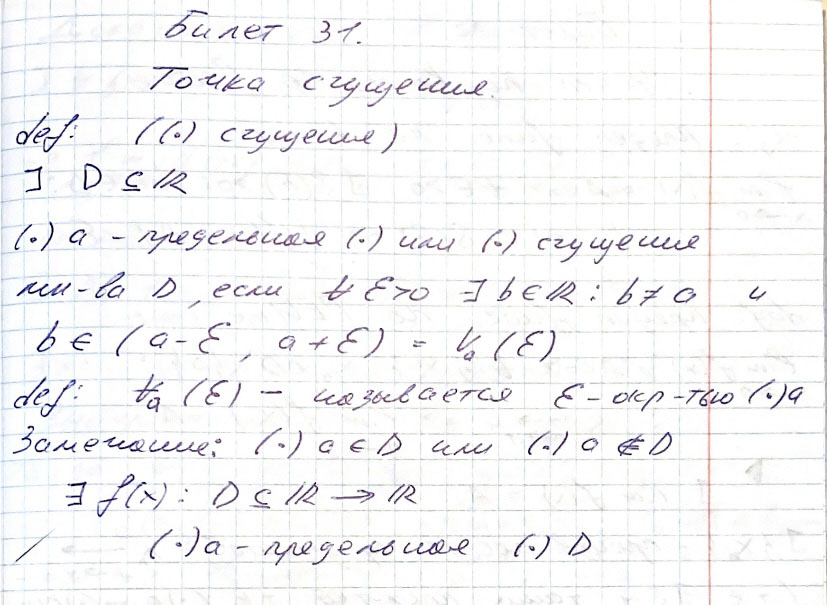 Билет 31.
Точка сгущения.
def: ((·) сгущения)
∃ D ⊆ ℝ
(·) a - предельная (·) или (·) сгущения
мн-ва D, если ∀ ε>0 ∃ b ∈ ℝ : b ≠ a и
b ∈ (a-ε, a+ε) = V_a(ε)
def: V_a(ε) - называется ε-окр-тью (·)a
Замечание: (·) a ∈ D или (·) a ∉ D
∃ f(x): D ⊆ ℝ → ℝ
(·)a - предельная (·) D